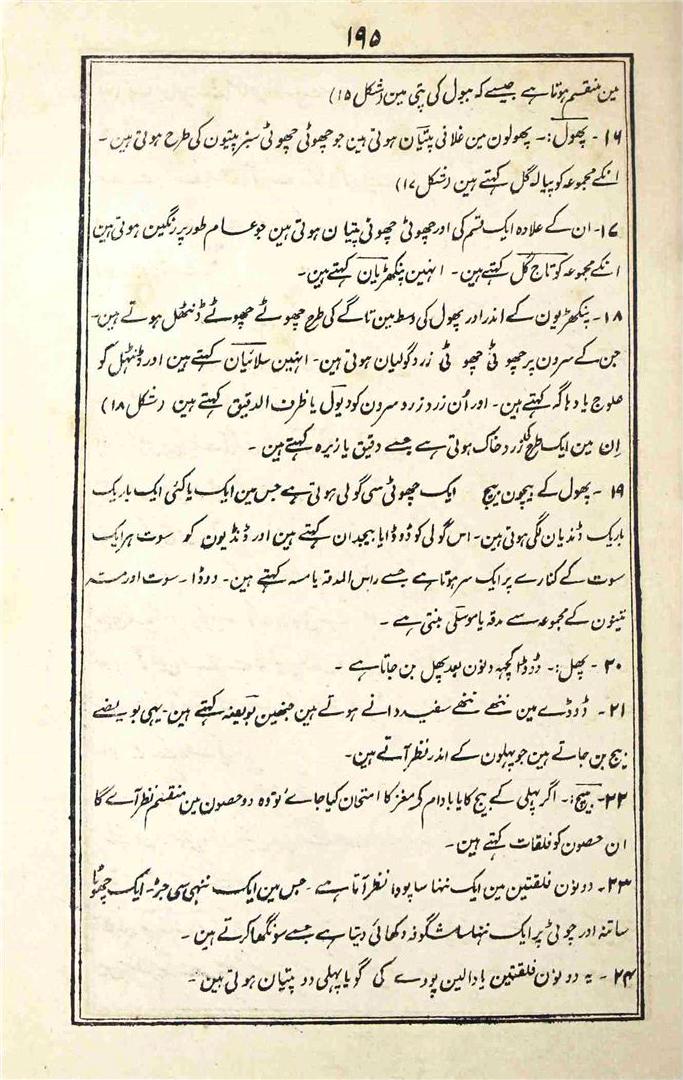 ۱۹۵
مین منقسم ہوتا ہے جیسے کہ ببول کی پتی مین (شکل ۱۵)
۱۶ - پھول :- پھولون مین غلافی پتیان ہوتی ہین جو چھوٹی چھوٹی سبز پتیون کی طرح ہوتی ہین -
انکے مجموعہ کو پیالہ گل کہتے ہین (شکل ۱۷)
۱۷- ان کے علاوہ ایک قسم کی اور چھوٹی چھوٹی پتیان ہوتی ہین جو عام طور پر رنگین ہوتی ہین
انکے مجموعہ کو تاج گل کہتے ہین - انہین پنکھڑیان کہتے ہین -
۱۸ - پنکھڑیون کے اندر اور پھول کی وسط مین تاگے کی طرح چھوٹے چھوٹے ڈنٹھل ہوتے ہین -
جن کے سرون پر چھوٹی چھوٹی زرد گولیان ہوتی ہین - انہین سلائیان کہتے ہین اور ڈنٹہل کو
حلوج یا دہاگہ کہتے ہین - اور اُن زرد زرد سرون کو دیول یا ظرف الدقیق کہتے ہین (شکل ۱۸)
اِن مین ایک طرح کی زرد خاک ہوتی ہے جسے دقیق یا زیرہ کہتے ہین -
۱۹ - پھول کے بیچون بیچ ایک چھوٹی سی گولی ہوتی ہے جس مین ایک یا کئی ایک باریک
باریک ڈنڈیان لگی ہوتی ہین - اس گولی کو ڈوڈا یا بیجدان کہتے ہین اور ڈنڈیون کو سوت ہر ایک
سوت کے کنارے پر ایک سر ہوتا ہے جسے راس المدقہ یا مسہ کہتے ہین - ڈوڈا - سوت اور مسہ
تینون کے مجموعہ سے مدقہ یا موسلی بنتی ہے -
۲۰ - پھل :- ڈوڈا کچھہ دنون بعد پھل بن جاتا ہے -
۲۱ - ڈوڈے مین ننھے ننھے سفید دانے ہوتے ہین جنھین بویضہ کہتے ہین - یہی بویضے
بیج بن جاتے ہین جو پہلون کے اندر نظر آتے ہین -
۲۲ - بیج :- اگر پہلی کے بیج کا یا بادام کی مغز کا امتحان کیا جاے تو وہ دو حصون مین منقسم نظر آے گا
ان حصون کو فلقات کہتے ہین -
۲۳ - دونون فلقتین مین ایک ننھا سا پودا نظر آتا ہے - جس مین ایک ننھی سی جڑ - ایک چھوٹا
سا تنہ اور چوٹی پر ایک ننھا سا شگوفہ دکھائی دیتا ہے جسے سونگھا کرتے ہین -
۲۴ - یہ دونون فلقتین یا دالین پودے کی گویا پہلی دو پتیان ہوتی ہین -